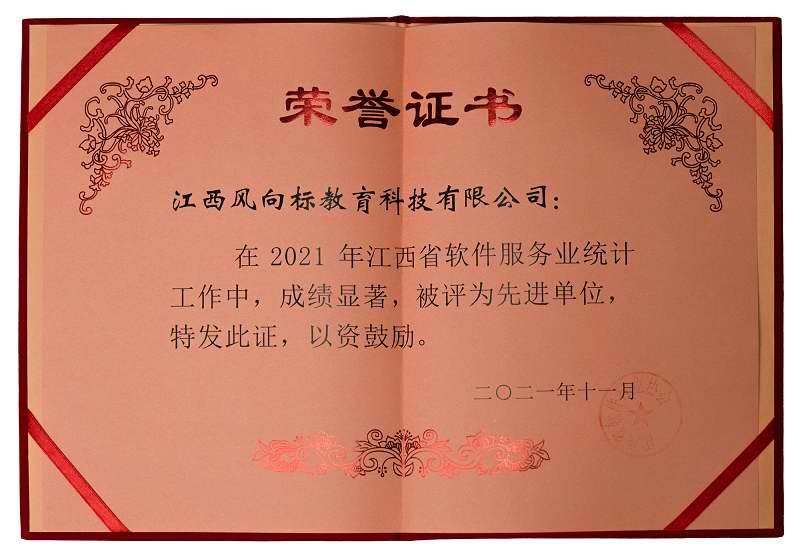 荣誉证书
江西风向标教育科技有限公司：
在 2021 年江西省软件服务业统计
工作中，成绩显著，被评为先进单位，
特发此证，以资鼓励。
二〇二一年十一月